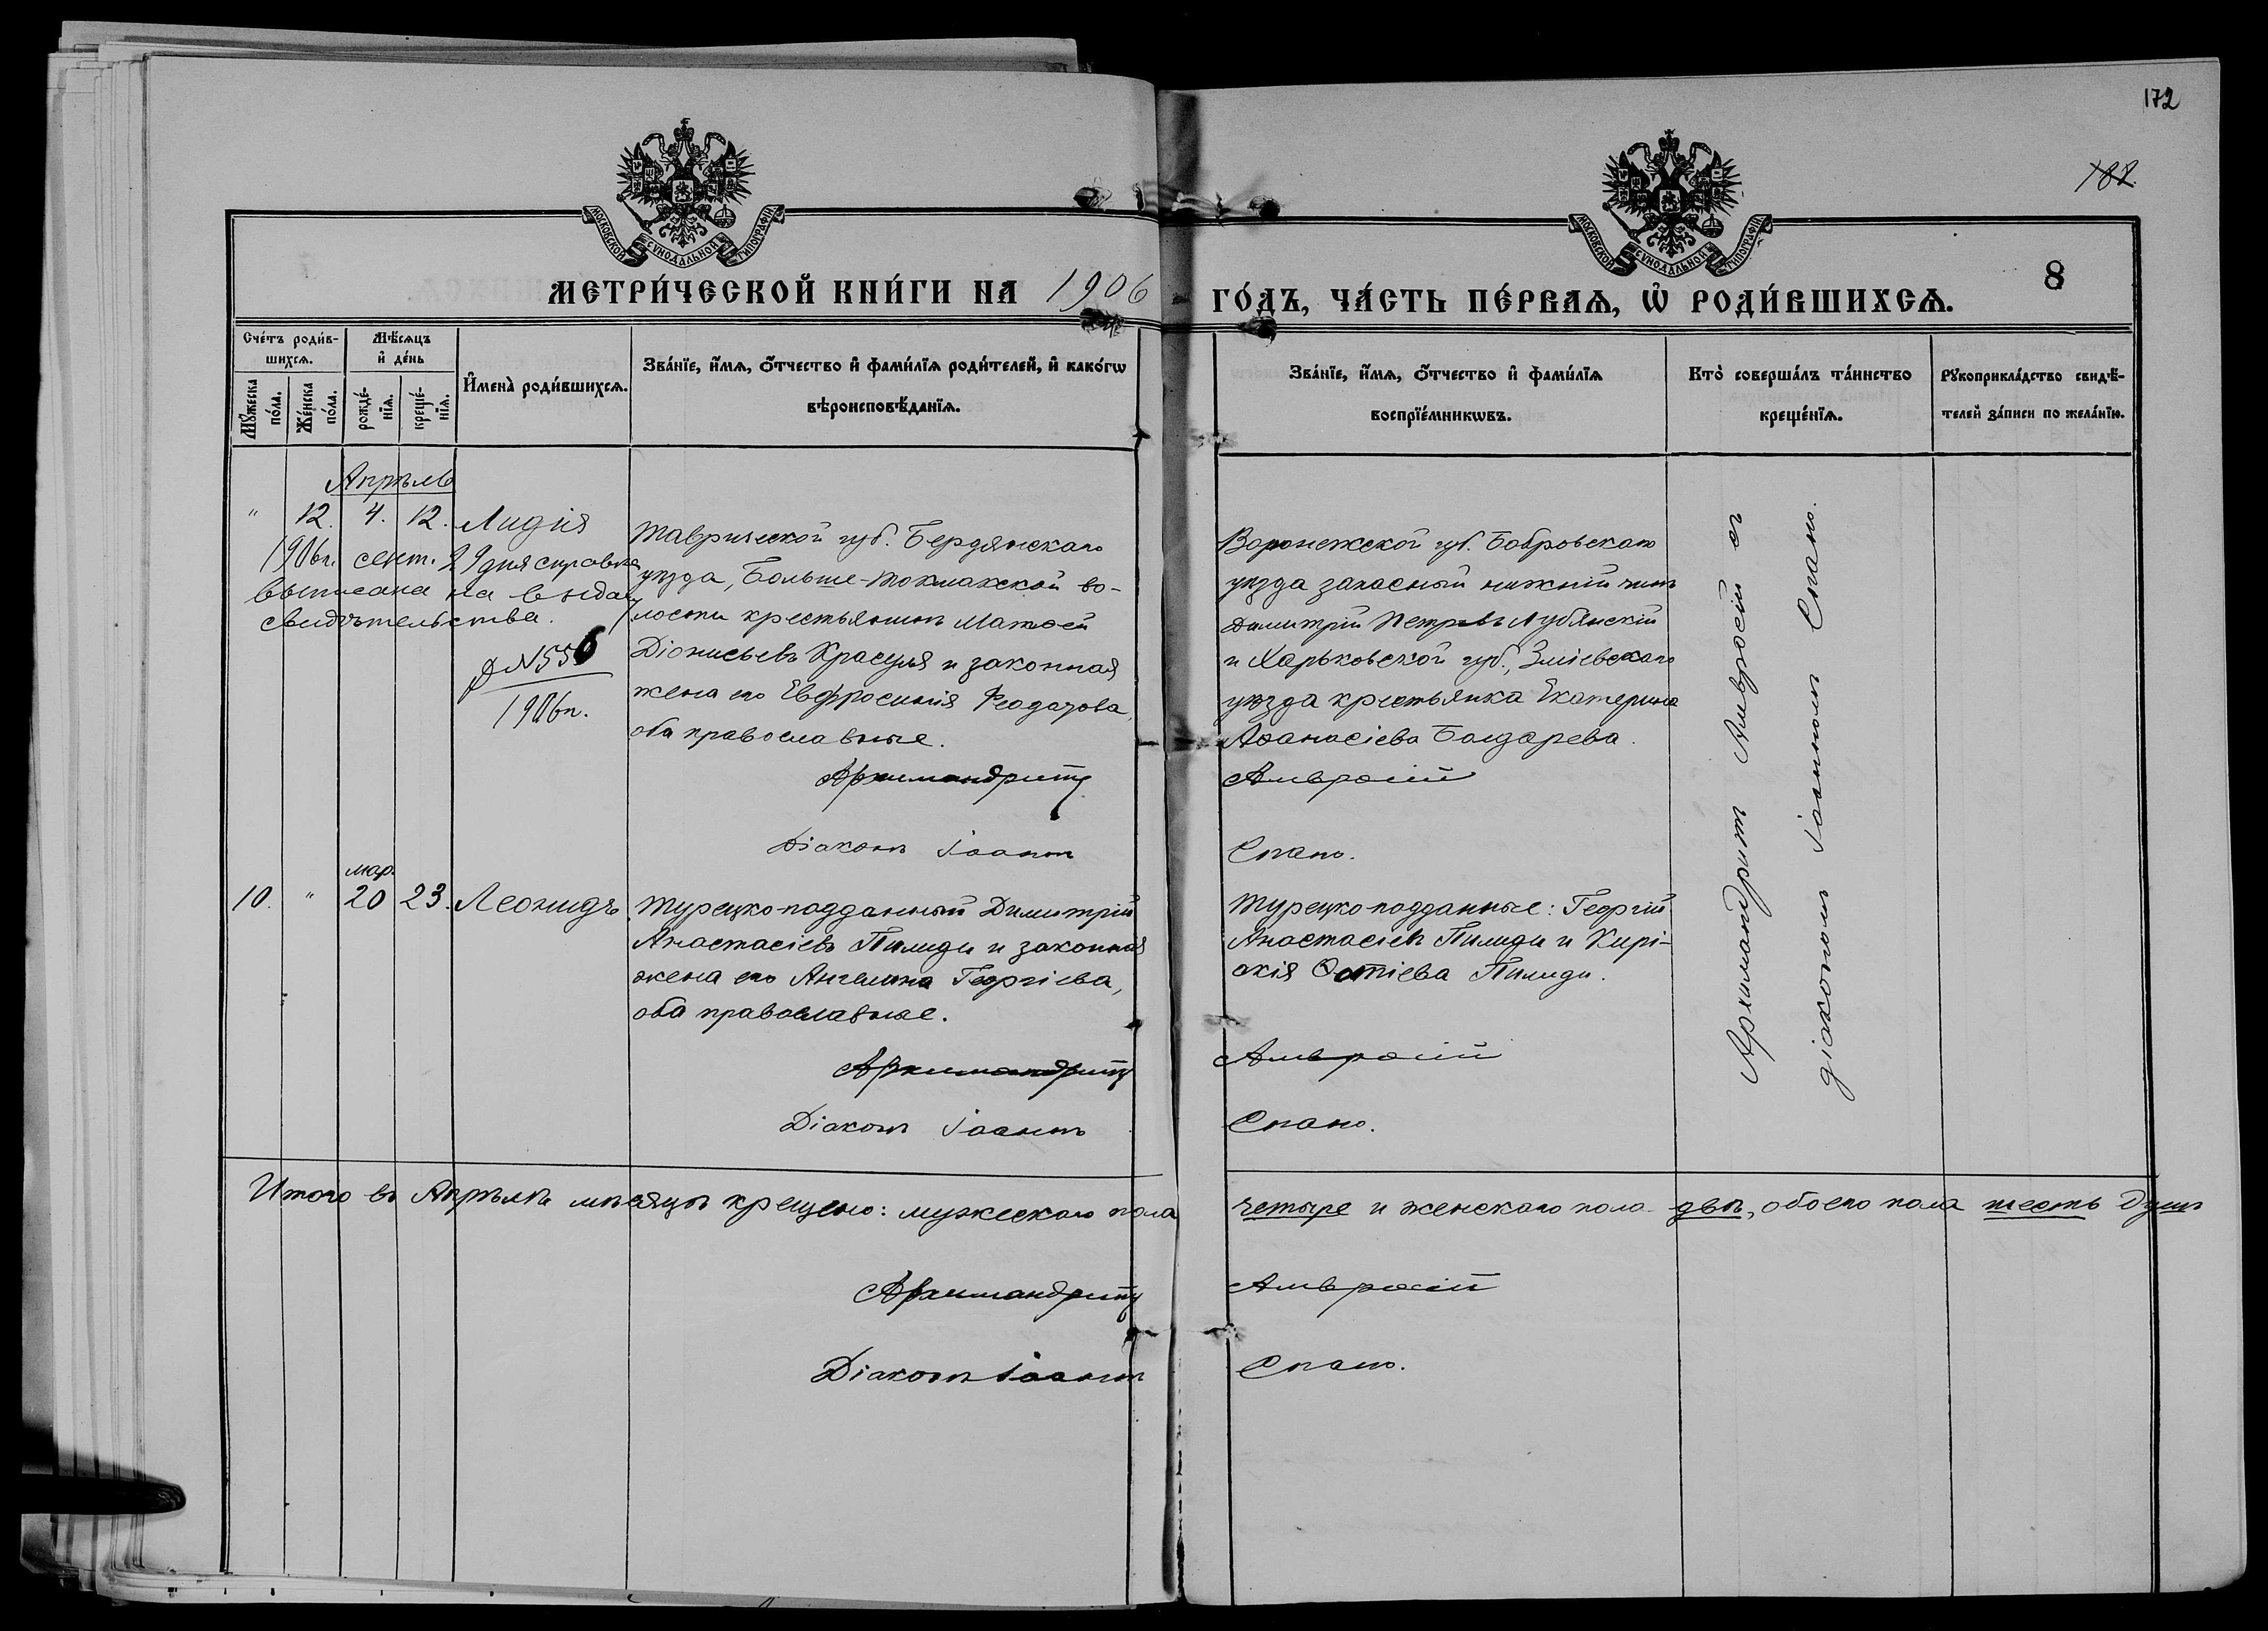 172
182
МОСКОВСКОЙ СѴНОДАЛЬНОЙ ТИПОГРАФІИ
МОСКОВСКОЙ СѴНОДАЛЬНОЙ ТИПОГРАФІИ
МЕТРИ́ЧЕСКОЙ КНИ́ГИ НА 1906
ГО́ДЪ, ЧА́СТЬ ПЕ́РВАѦ, Ѡ҆ РОДИ́ВШИХСѦ.
8
Сче́тъ роди́в-
шихсѧ.
Мꙋ́жеска
по́ла.
Же́нска
по́ла.
Мѣ́сѧцъ
и҆ де́нь
рожде́-
нїѧ.
креще́-
нїѧ.
И҆мена̀ роди́вшихсѧ.
Зва́нїе, и҆́мѧ, ѻ҆́тчество и҆ фами́лїѧ роди́телей, и҆ како́гѡ
вѣроисповѣ́данїѧ.
Зва́нїе, и҆́мѧ, ѻ҆́тчество и҆ фами́лїѧ
воспрїе́мникѡвъ.
Кто̀ соверша́лъ та́инство
креще́нїѧ.
Рꙋкоприкла́дство свидѣ́-
телей за́писи по жела́нїю.
Апрѣль
" 12. 4. 12. Лидія
1906г. сент. 29 дня справка
выписана на выдачу
свидѣтельства.
№556
1906г.
Таврической губ. Бердянскаго
уѣзда, Больше-Токмакской во-
лости крестьянинъ Матѳей
Діонисьевъ Красуля и законная
жена его Евфросинія Ѳеодотова,
оба православные.
Архимандритъ
Діаконъ Іоаннъ
Воронежской губ. Бобровскаго
уѣзда запасный нижній чинъ
Димитрій Петровъ Лубянскій
и Харьковской губ., Зміевскаго
уѣзда крестьянка Екатерина
Аѳанасіева Бондарева.
Амвросій
Спано.
Архимандритъ Амвросій съ
діакономъ Іоанномъ Спано.
мар.
10. " 20 23. Леонидъ
Турецко-подданный Димитрій
Анастасіевъ Пилиди и законная
жена его Ангелина Георгіева,
оба православные.
Архимандритъ
Діаконъ Іоаннъ
Турецко-подданные: Георгій
Анастасіевъ Пилиди и Кирі-
акія Ѳотіева Пилиди.
Амвросій
Спано.
Итого въ Апрѣлѣ мѣсяцѣ крещено: мужескаго пола
четыре и женскаго пола двѣ, обоего пола шесть душъ
Архимандритъ
Амвросій
Діаконъ Іоаннъ
Спано.